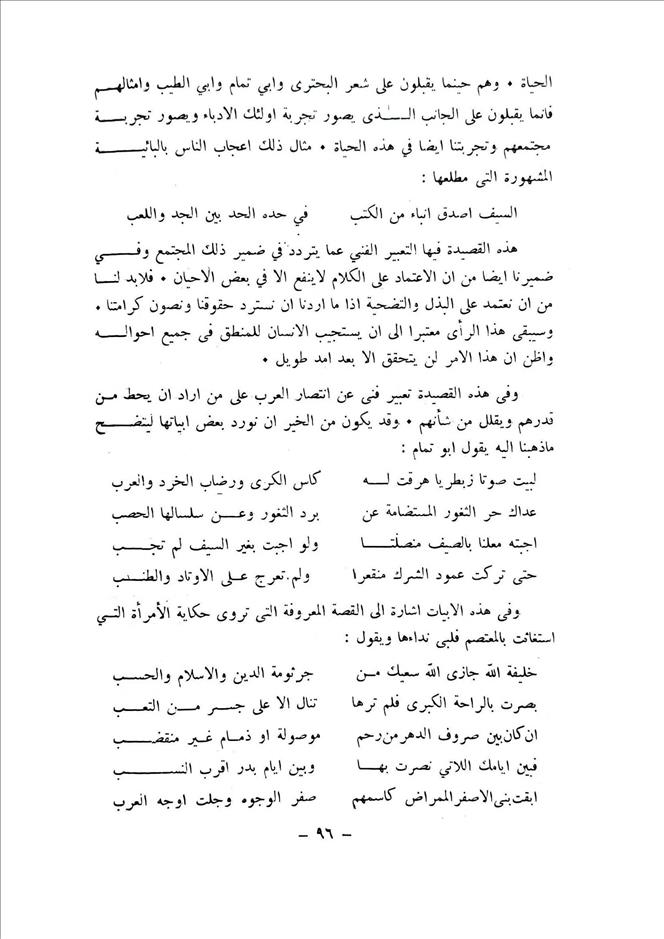 الحياة • وهم حينما يقبلون على شعر البحترى وابي تمام وابي الطيب وامثالهم
فانما يقبلون على الجانب الذى يصور تجربة اولئك الادباء ويصور تجربة
مجتمعهم وتجربتنا ايضا في هذه الحياة • مثال ذلك اعجاب الناس بالبائية
المشهورة التى مطلعها :
السيف اصدق انباء من الكتب في حده الحد بين الجد واللعب
هذه القصيدة فيها التعبير الفني عما يتردد في ضمير ذلك المجتمع وفي
ضميرنا ايضا من ان الاعتماد على الكلام لاينفع الا في بعض الاحيان • فلابد لنا
من ان نعتمد على البذل والتضحية اذا ما اردنا ان نسترد حقوقنا ونصون كرامتنا •
وسيبقى هذا الرأى معتبرا الى ان يستجيب الانسان للمنطق فى جميع احواله
واظن ان هذا الامر لن يتحقق الا بعد امد طويل •
وفى هذه القصيدة تعبير فنى عن انتصار العرب على من اراد ان يحط من
قدرهم ويقلل من شأنهم • وقد يكون من الخير ان نورد بعض ابياتها ليتضح
ماذهبنا اليه يقول ابو تمام :
لبيت صوتا زبطريا هرقت له كاس الكرى ورضاب الخرد والعرب
عداك حر الثغور المستضامة عن برد الثغور وعن سلسالها الحصب
اجبته معلنا بالصيف منصلتا ولو اجبت بغير السيف لم تجب
حتى تركت عمود الشرك منقعرا ولم تعرج على الاوتاد والطنب
وفى هذه الابيات اشارة الى القصة المعروفة التى تروى حكاية الأمرأة التي
استغاثت بالمعتصم فلبى نداءها ويقول :
خليفة الله جازى الله سعيك من جرثومة الدين والاسلام والحسب
بصرت بالراحة الكبرى فلم ترها تنال الا على جسر من التعب
ان كان بين صروف الدهر من رحم موصولة او ذمام غير منقضب
فبين ايامك اللاتي نصرت بها وبين ايام بدر اقرب النسب
ابقت بنى الاصفر الممراض كاسمهم صفر الوجوه وجلت اوجه العرب
– ٩٦ –